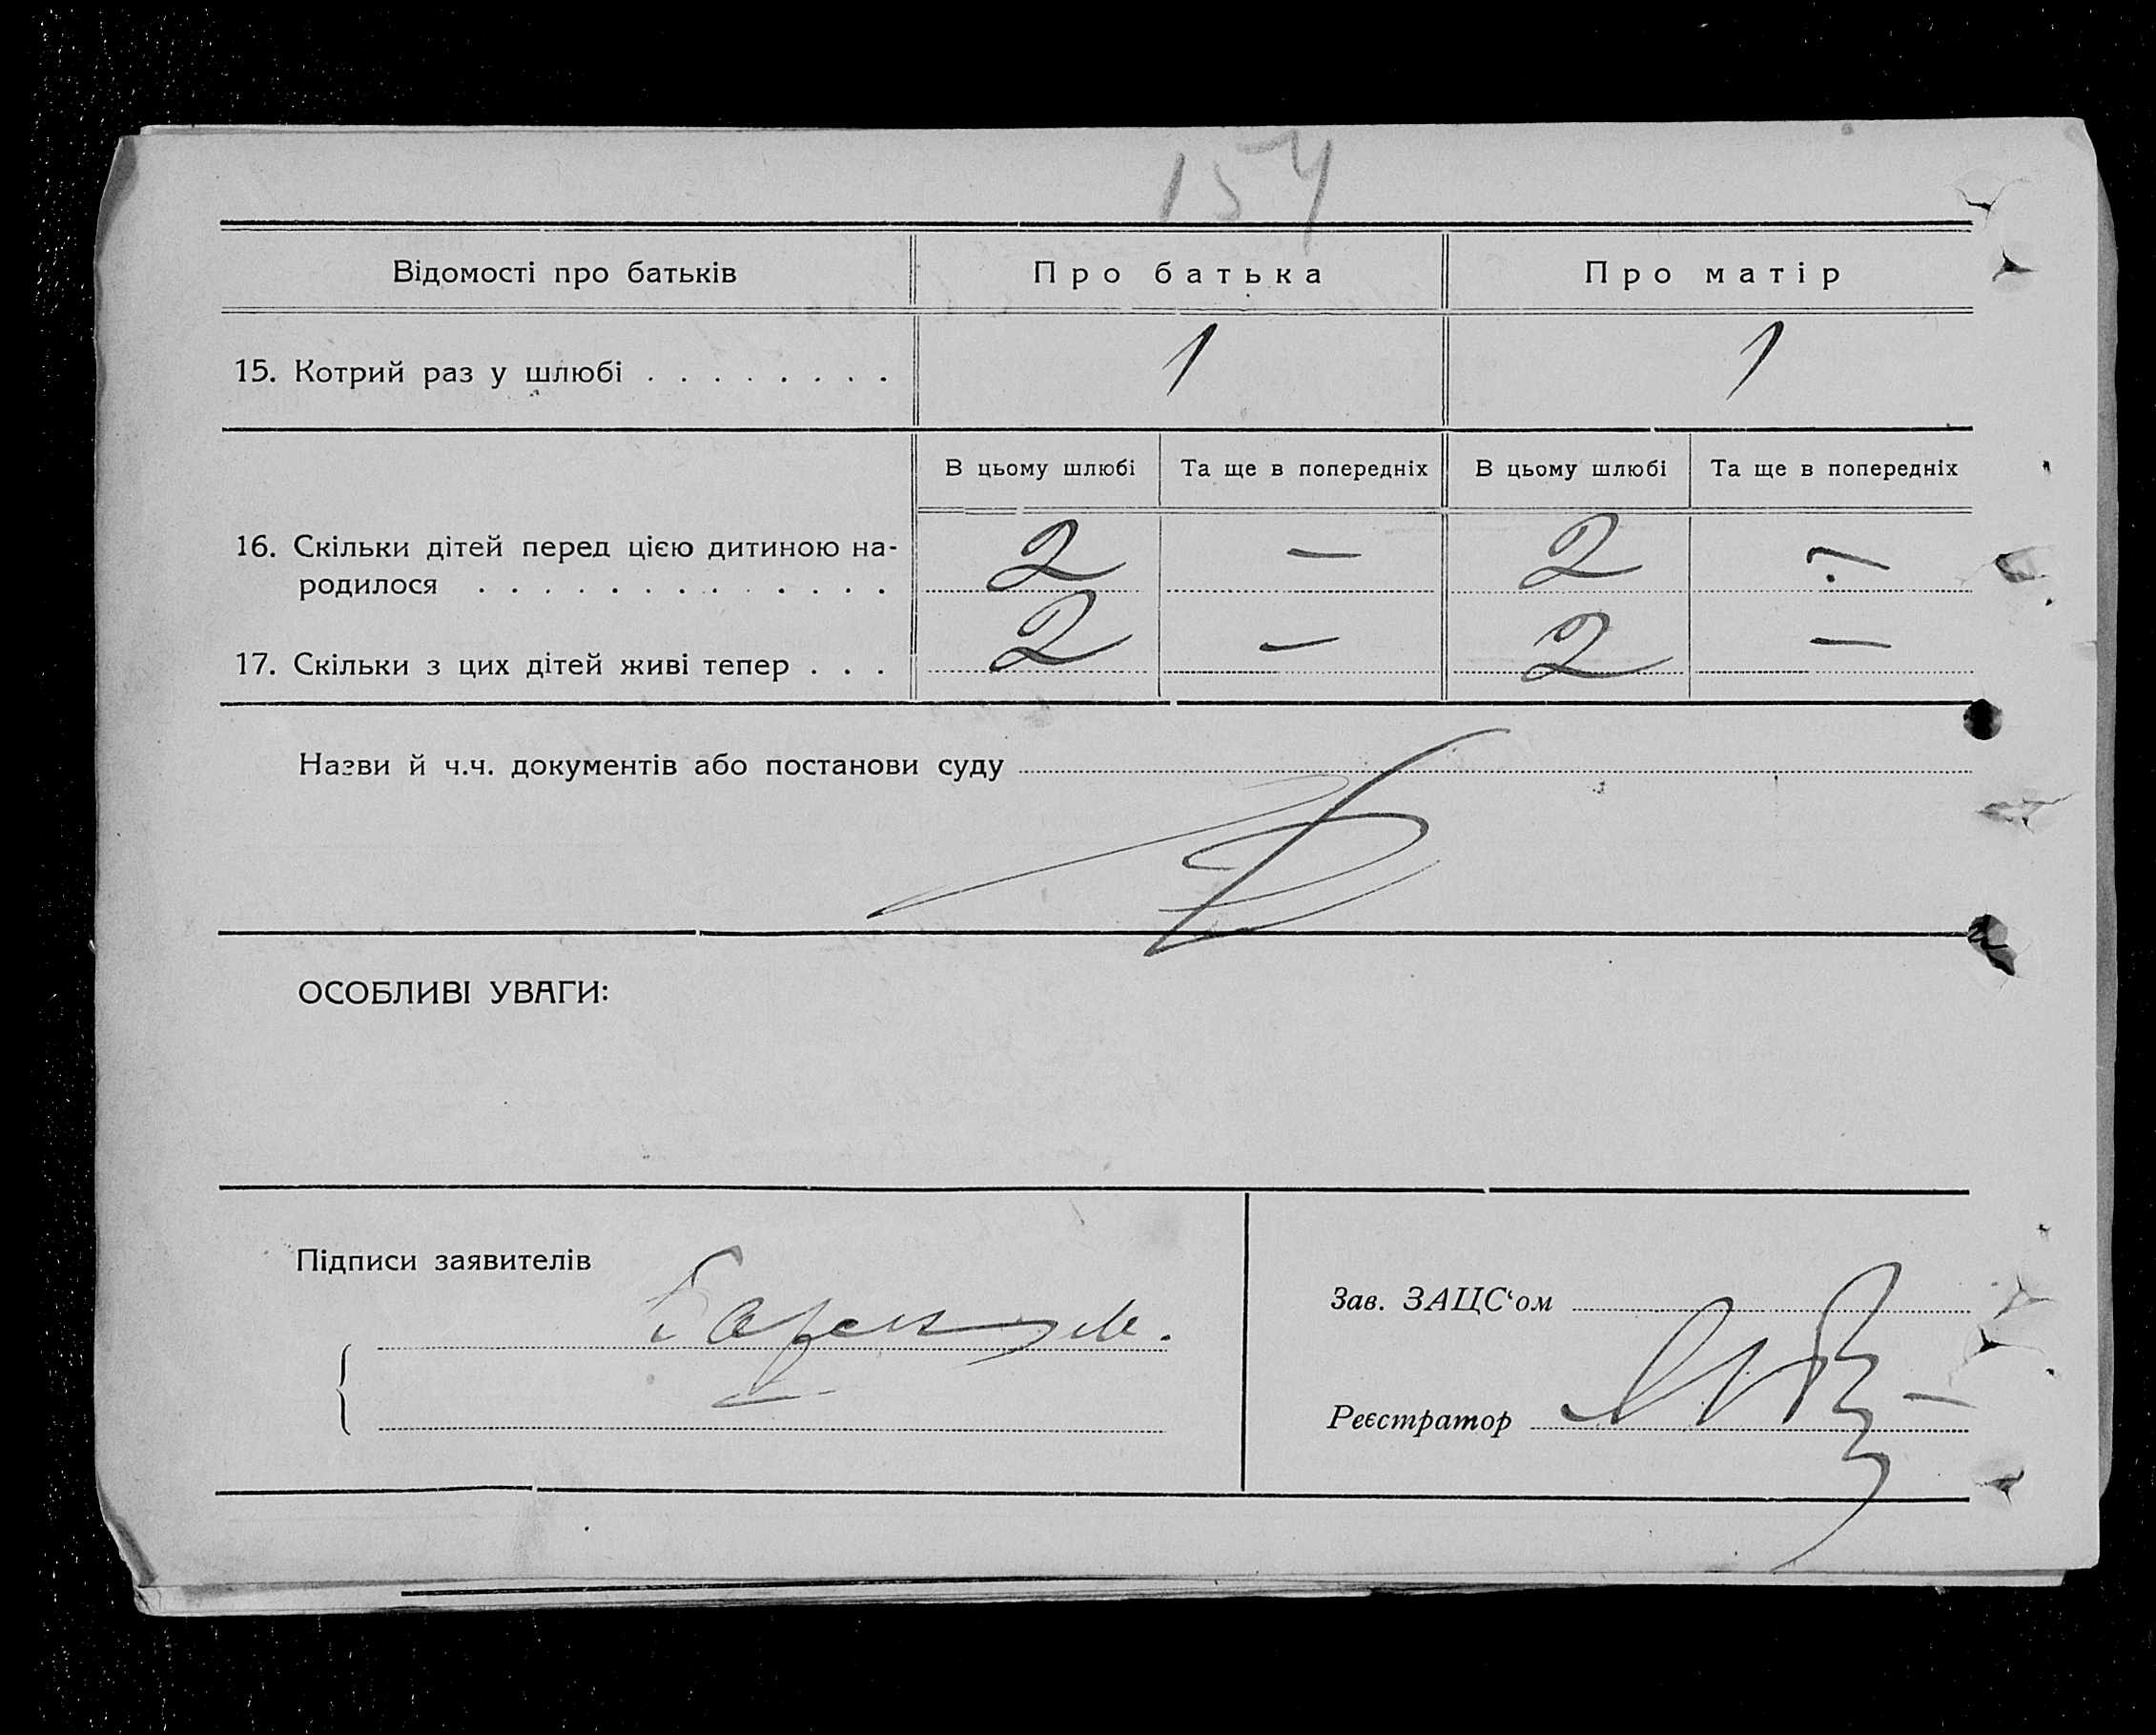 154
Відомості про батьків Про батька Про матір
15. Котрий раз у шлюбі . . . . . . . . 1 1
В цьому шлюбі Та ще в попередніх В цьому шлюбі Та ще в попередніх
16. Скільки дітей перед цією дитиною на-
родилося . . . . . . . . . . . . . 2 — 2 —
17. Скільки з цих дітей живі тепер . . . 2 — 2 —
Назви й ч.ч. документів або постанови суду
ОСОБЛИВІ УВАГИ:
Підписи заявителів
Зав. ЗАЦС‘ом
Реєстратор